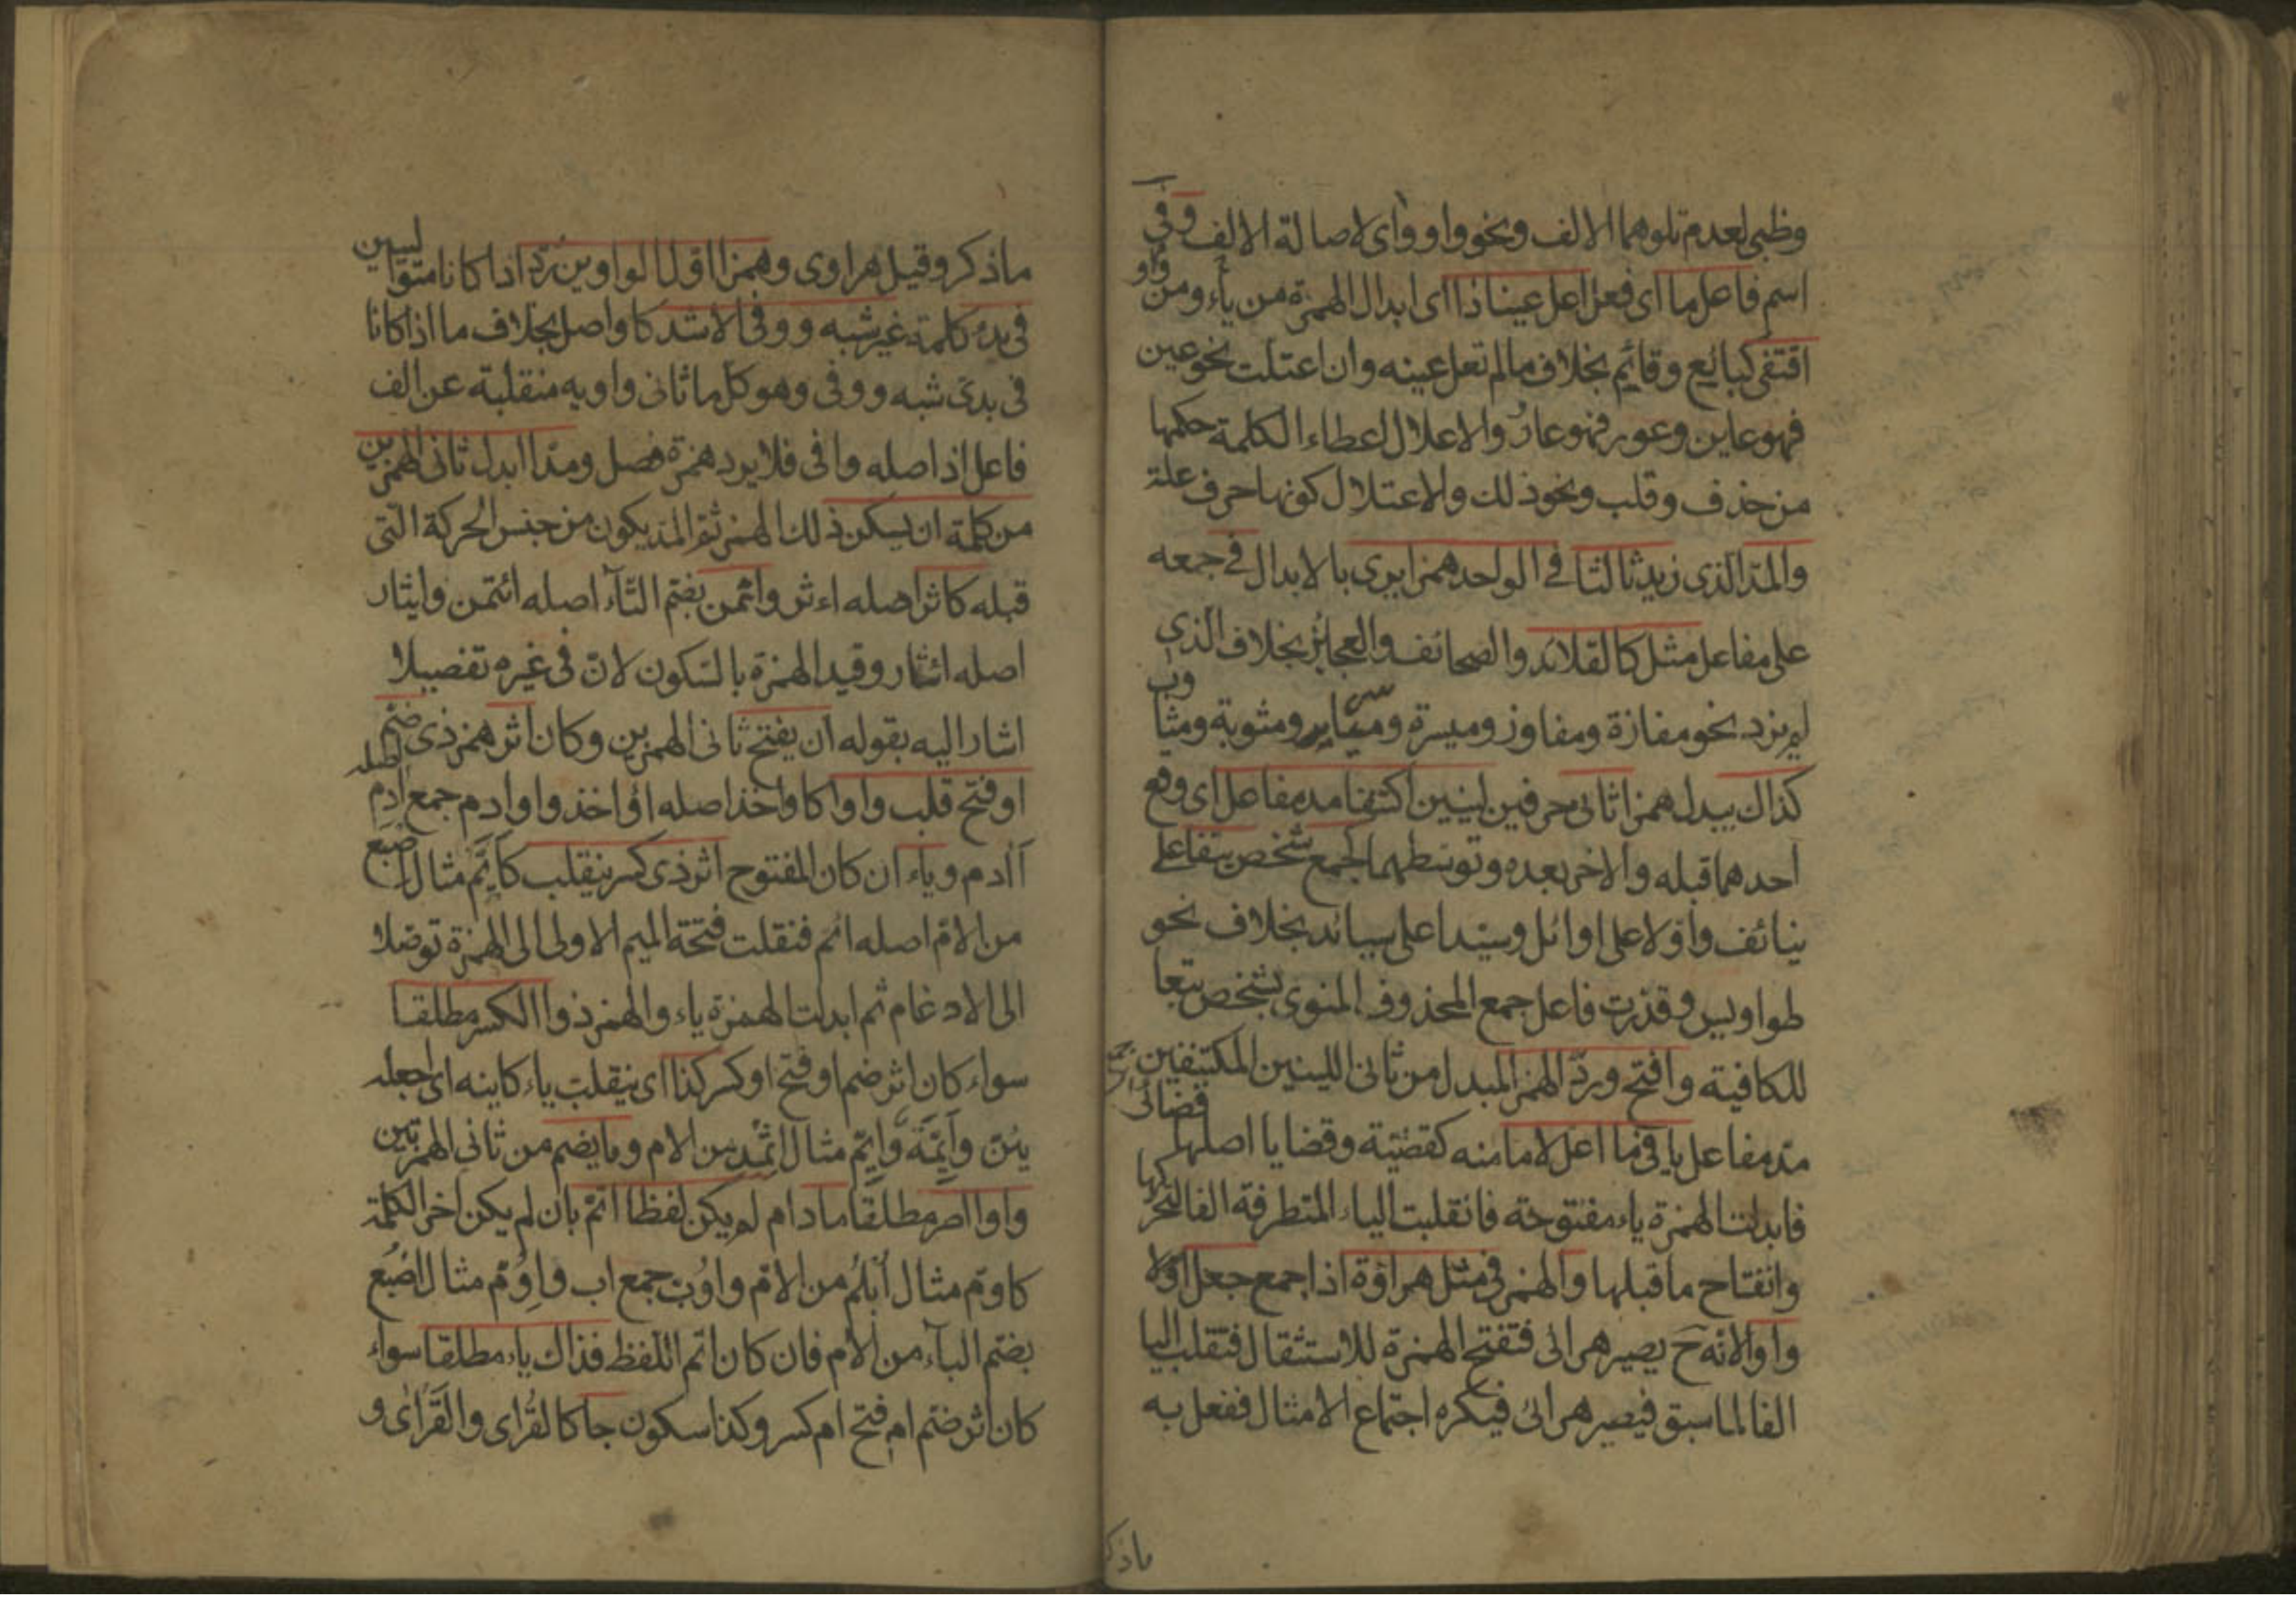 وظبي لعدم تلوهما الالف ونحو واو وٰاى لاصالة الالف وفى
اسم فاعل ما اى فعل اعل عينا ذا اى ابدال الهمزة من ياء ومن واو
اقتفى كبائع وقائم بخلاف ما لم تعل عينه وان اعتلت نحو عين
فهو عاين وعور فهو عاور والاعلال اعطاء الكلمة حكمها
من حذف وقلب ونحو ذلك والاعتلال كونها حرف علة
والمد الذى زيد ثالثا فى الواحد همزا يرى بالابدال فى جمعه
على مفاعل مثل كالقلائد والصحائف والعجائز بخلاف الذى
لم يزد نحو مفازة ومفاوز وميسرة ومياسر ومثوبة ومثاوب
كذاك يبدل همزا ثانى حرفين لينين اكتنفا مد مفاعل اى وقع
احدهما قبله والاخر بعده وتوسطهما كجمع شخص نيفا على
نيائف واولا على اوائل وسيدا على سيائد بخلاف نحو
طواويس وقدرت فاعل جمع المحذوف المنوى بشخص تبعا
للكافية وافتح ورد الهمز المبدل من ثانى اللينين المكتنفين
مد مفاعل يا فيما اعل لاما منه كقضية وقضايا اصلها قضائى
فابدلت الهمزة ياء مفتوحة فانقلبت الياء المتطرفة الفا لتحركها
وانفتاح ما قبلها والهمز فى مثل هراوة اذا جمع جعل اولا
واوا لانه ح يصير هرائى فتفتح الهمزة للاستثقال فتقلب اليا
الفا لما سبق فيصير هرائى فيكره اجتماع الامثال ففعل به
ماذكر
ماذكر وقيل هراوى وهمزا اول الواوين رد اذا كانا متواليين
فى بدء كلمة غير شبه ووفى الاشد كاواصل بخلاف ما اذا كانا
فى بدئ شبه ووفى وهو كل ما ثانى واويه منقلبة عن الف
فاعل اذ اصله وافى فلا يرد همزة فصل ومدا ابدل ثانى الهمزين
من كلمة ان يسكن ذلك الهمز ثم المد يكون من جنس الحركة التى
قبله كاثر اصله اءثر واتمن بضم التآء اصله ائتمن وايثار
اصله ائثار وقيد الهمزة بالسكون لان فى غيره تفصيلا
اشار اليه بقوله ان يفتح ثانى الهمزين وكان اثر همز ذى ضم
او فتح قلب واوا كاواخذ اصله اؤاخذ واوادم جمع ادم اصله
أادم وياء ان كان المفتوح اثر ذى كسر ينقلب كايم مثال اصبع
من الام اصله ائمم فنقلت فتحة الميم الاولى الى الهمزة توصلا
الى الادغام ثم ابدلت الهمزة ياء والهمز ذو الكسر مطلقا
سواء كان اثر ضم او فتح او كسر كذا اى ينقلب ياء كاينه اى اجعله
يئن وايمة وايم مثال اثمد من الام وما يضم من ثانى الهمزتين
واوا اصر مطلقا ما دام لم يكن لفظا اتم بان لم يكن اخر الكلمة
كاوم مثال ابلم من الام واوب جمع اب واوم مثال اصبع
بضم البآء من الام فان كان اتم اللفظ فذاك ياء مطلقا سواء
كان اثر ضم ام فتح ام كسر وكذا سكون جا كالقرأى والقرأى و